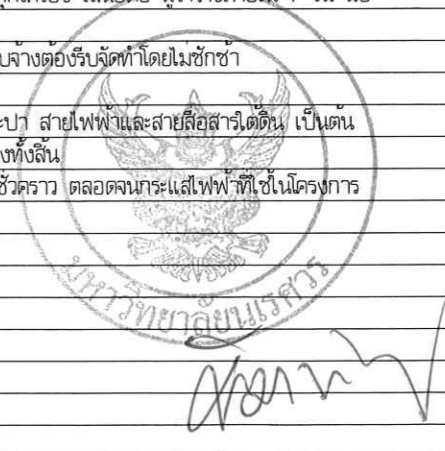 บจ้างต้องรีบจัดทำโดยไม่ชักช้า
ะปา สายไฟฟ้าและสายสื่อสารใต้ดิน เป็นต้น
งทั้งสิ้น
ชั่วคราว ตลอดจนกระแสไฟฟ้าที่ใช้ในโครงการ
มหาวิทยาลัยนเรศวร